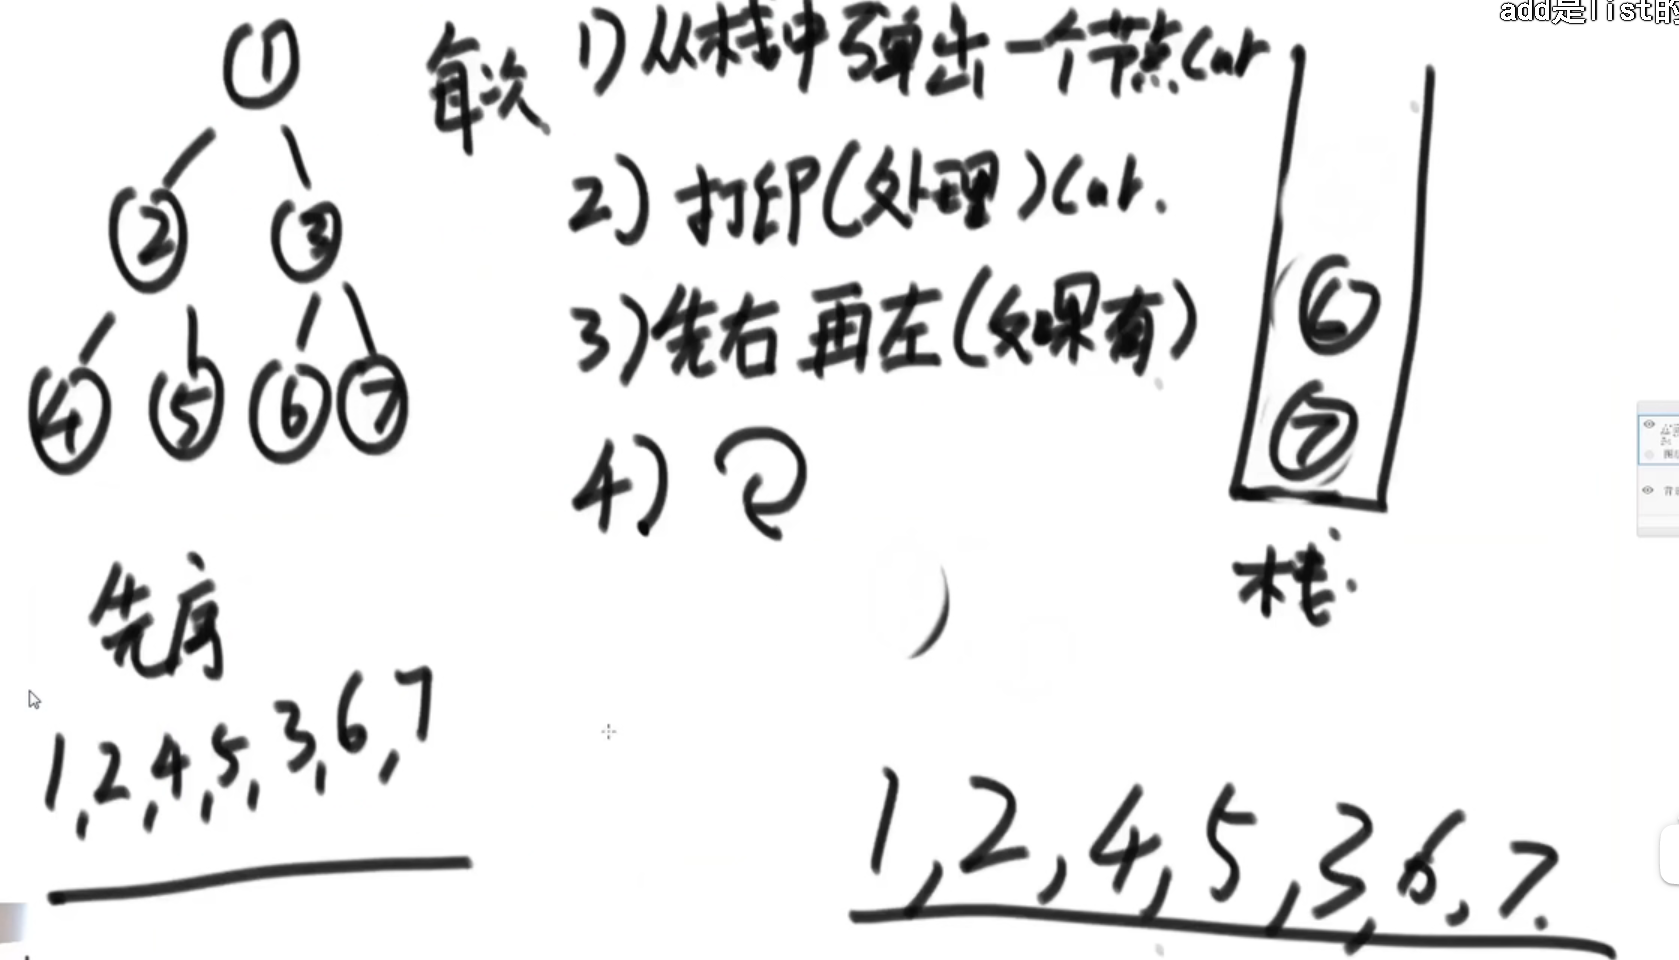 add是list的
①
② ③
④ ⑤ ⑥ ⑦
每次
1) 从栈中弹出一个节点cur
2) 打印(处理)cur.
3) 先右再左(如果有)
4)
⑥
⑦
栈
先序
1,2,4,5,3,6,7
1,2,4,5,3,6,7.